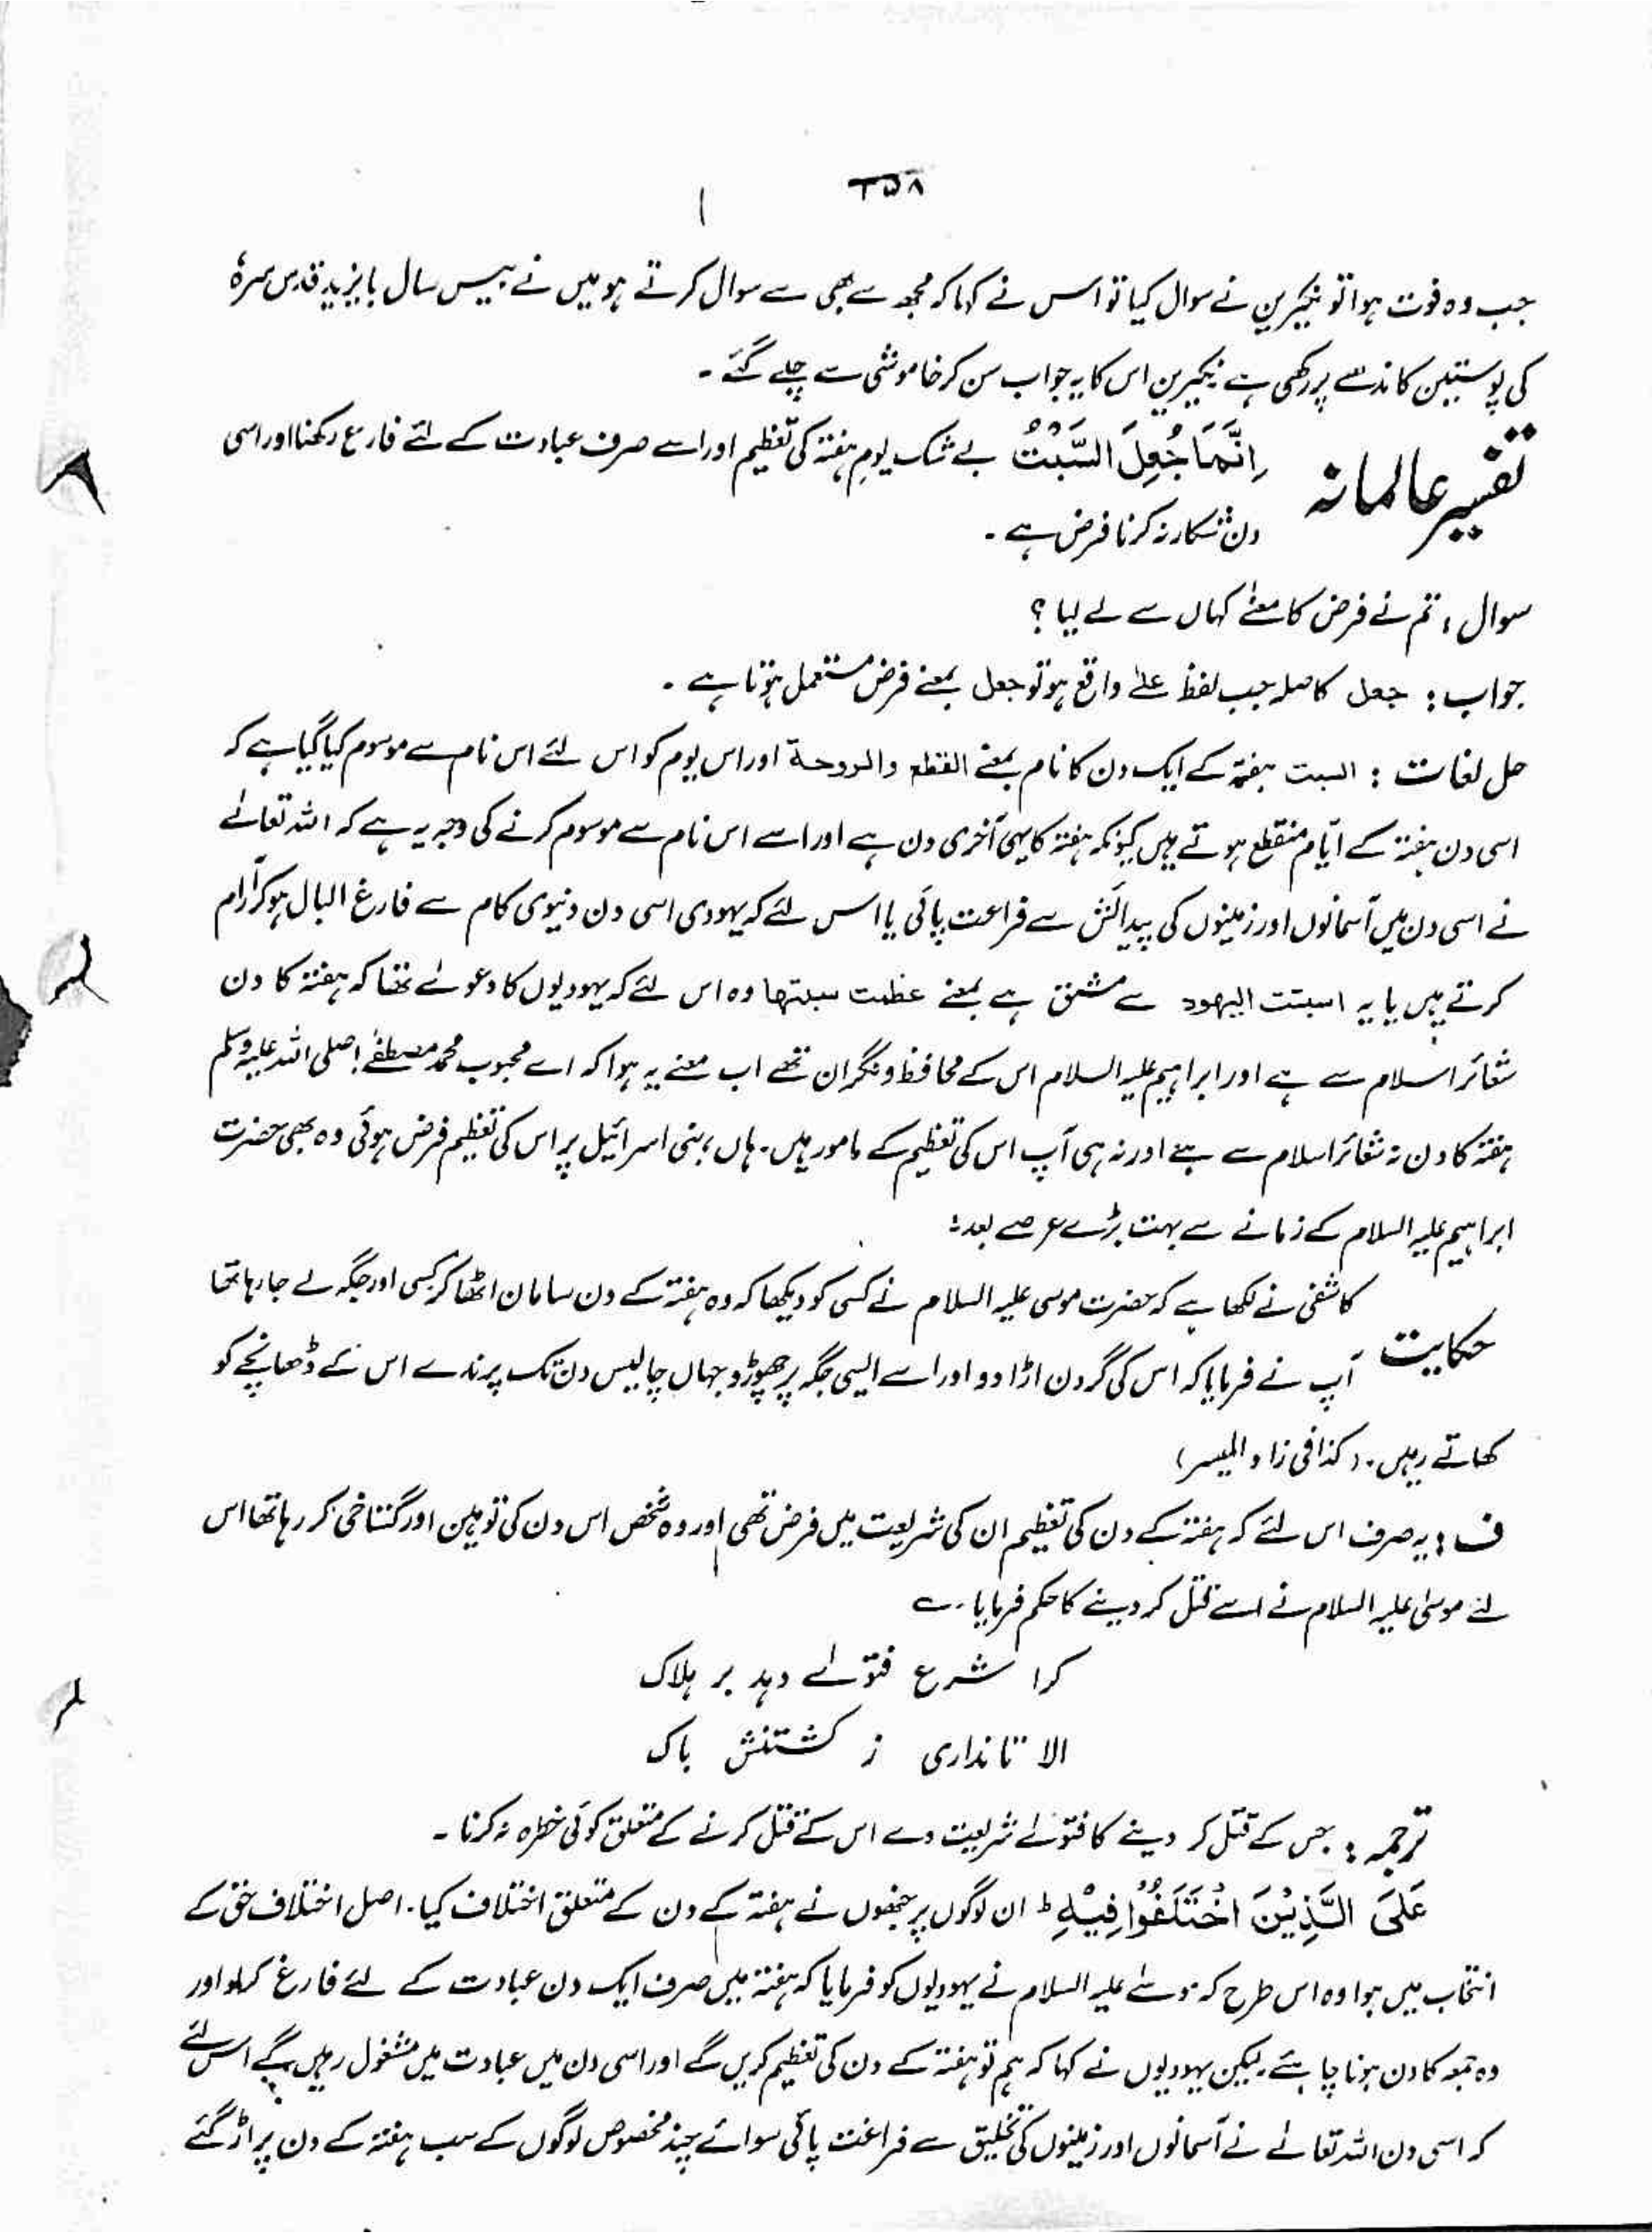 ۳۵۸
جب وہ فوت ہوا تو نکیرین نے سوال کیا تو اس نے کہا کہ مجھ سے بھی سوال کرتے ہو میں نے بیس سال بایزید قدس سرہٗ
کی پوستین کاندھے پر رکھی ہے نکیرین اس کا یہ جواب سن کر خاموشی سے چلے گئے ۔
تفسیر عالمانہ
اِنَّمَا جُعِلَ السَّبْتُ بے شک یومِ ہفتہ کی تعظیم اور اسے صرف عبادت کے لئے فارغ رکھنا اور اسی
دن شکار نہ کرنا فرض ہے ۔
سوال : تم نے فرض کا معنےٰ کہاں سے لے لیا ؟
جواب : جعل کا صلہ جب لفظ علےٰ واقع ہو تو جعل بمعنے فرض مستعمل ہوتا ہے ۔
حل لغات : السبت ہفتہ کے ایک دن کا نام بمعنے القطع والروحة اور اس یوم کو اس لئے اس نام سے موسوم کیا گیا ہے کہ
اسی دن ہفتہ کے ایّام منقطع ہوتے ہیں کیونکہ ہفتہ کا یہی آخری دن ہے اور اسے اس نام سے موسوم کرنے کی وجہ یہ ہے کہ اللہ تعالےٰ
نے اسی دن میں آسمانوں اور زمینوں کی پیدائش سے فراغت پائی یا اس لئے کہ یہودی اسی دن دنیوی کام سے فارغ البال ہو کر آرام
کرتے ہیں یا یہ اسبتت الیہود سے مشتق ہے بمعنے عظمت سبتہا وہ اس لئے کہ یہودیوں کا دعوےٰ تھا کہ ہفتہ کا دن
شعائر اسلام سے ہے اور ابراہیم علیہ السلام اس کے محافظ و نگران تھے اب معنے یہ ہوا کہ اے محبوب محمد مصطفےٰ صلی اللہ علیہ وسلم
ہفتہ کا دن نہ شعائر اسلام سے ہے اور نہ ہی آپ اس کی تعظیم کے مامور ہیں۔ ہاں ، بنی اسرائیل پر اس کی تعظیم فرض ہوئی وہ بھی حضرت
ابراہیم علیہ السلام کے زمانے سے بہت بڑے عرصے بعد :
حکایت
کاشفی نے لکھا ہے کہ حضرت موسی علیہ السلام نے کسی کو دیکھا کہ وہ ہفتہ کے دن سامان اٹھا کر کسی اور جگہ لے جا رہا تھا
آپ نے فرمایا کہ اس کی گردن اڑا دو اور اسے ایسی جگہ پر چھوڑو جہاں چالیس دن تک پرندے اس کے ڈھانچے کو
کھاتے رہیں۔ (کذا فی زاد المیسر)
ف : یہ صرف اس لئے کہ ہفتہ کے دن کی تعظیم ان کی شریعت میں فرض تھی اور وہ شخص اس دن کی توہین اور گستاخی کر رہا تھا اس
لئے موسیٰ علیہ السلام نے اسے قتل کر دینے کا حکم فرمایا ۔ ؎
کرا شرع فتوٰے دہد بر ہلاک
الا تا نداری ز کشتنش باک
ترجمہ : جس کے قتل کر دینے کا فتوےٰ شریعت دے اس کے قتل کرنے کے متعلق کوئی خطرہ نہ کرنا ۔
عَلَی الَّذِیْنَ اخْتَلَفُوْا فِیْہِ ط ان لوگوں پر جنھوں نے ہفتہ کے دن کے متعلق اختلاف کیا۔ اصل اختلاف حق کے
انتخاب میں ہوا وہ اس طرح کہ موسےٰ علیہ السلام نے یہودیوں کو فرمایا کہ ہفتہ میں صرف ایک دن عبادت کے لئے فارغ کر لو اور
وہ جمعہ کا دن ہونا چاہئے۔ لیکن یہودیوں نے کہا کہ ہم تو ہفتہ کے دن کی تعظیم کریں گے اور اسی دن میں عبادت میں مشغول رہیں گے اس لئے
کہ اسی دن اللہ تعالےٰ نے آسمانوں اور زمینوں کی تخلیق سے فراغت پائی سوائے چند مخصوص لوگوں کے سب ہفتہ کے دن پر اڑ گئے